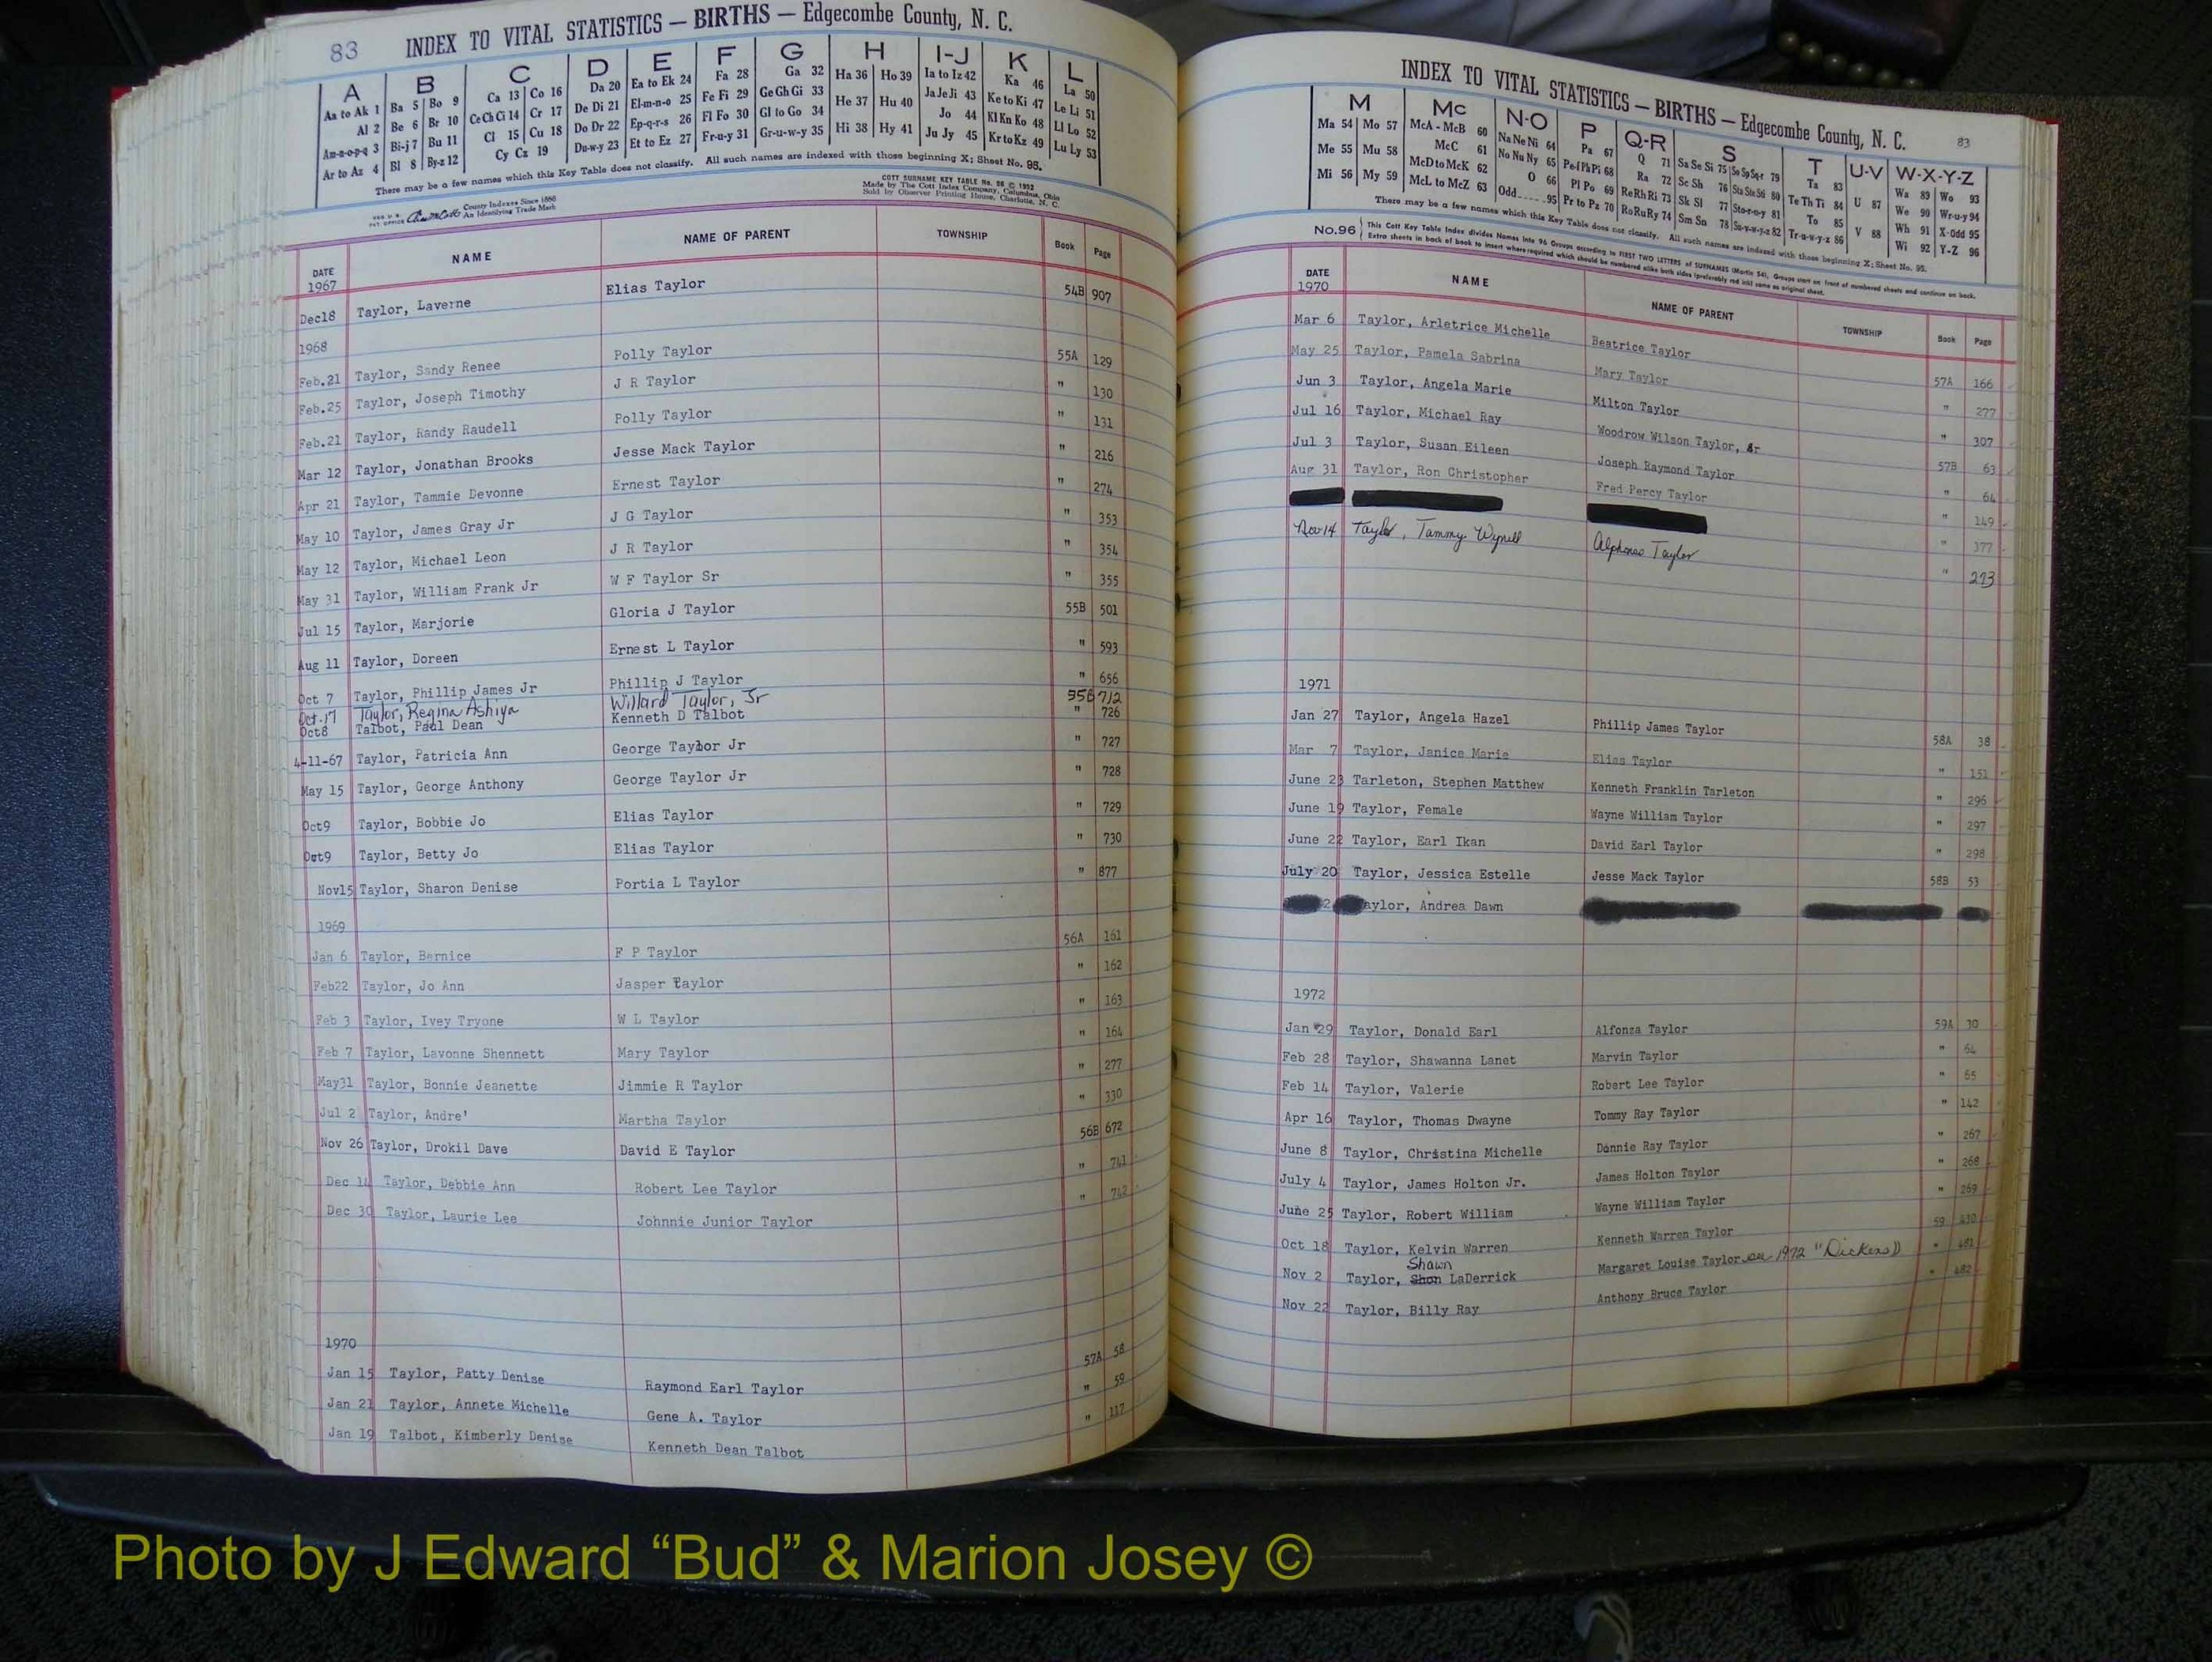 83 INDEX TO VITAL STATISTICS — BIRTHS — Edgecombe County, N. C.
A B C D E F G H I-J K L
Aa to Ak 1 Ba 5 Bo 9 Ca 13 Co 16 Da 20 Ea to Ek 24 Fa 28 Ga 32 Ha 36 Ho 39 Ia to Iz 42 Ka 46 La 50
Al 2 Be 6 Br 10 Ce Ch Ci 14 Cr 17 De Di 21 El-m-n-o 25 Fe Fi 29 Ge Gh Gi 33 He 37 Hu 40 Ja Je Ji 43 Ke to Ki 47 Le Li 51
Am-n-o-p-q 3 Bi-j 7 Bu 11 Cl 15 Cu 18 Do Dr 22 Ep-q-r-s 26 Fl Fo 30 Gl to Go 34 Hi 38 Hy 41 Jo 44 Kl Kn Ko 48 Ll Lo 52
Ar to Az 4 Bl 8 By-z 12 Cy Cz 19 Du-w-y 23 Et to Ez 27 Fr-u-y 31 Gr-u-w-y 35 Ju Jy 45 Kr to Kz 49 Lu Ly 53
There may be a few names which this Key Table does not classify. All such names are indexed with those beginning X; Sheet No. 95.
REG. U.S. PAT. OFFICE County Indexes Since 1888 An Identifying Trade Mark
COTT SURNAME KEY TABLE No. 96 © 1952
Made by The Cott Index Company, Columbus, Ohio
Sold by Observer Printing House, Charlotte, N. C.
DATE NAME NAME OF PARENT TOWNSHIP Book Page
1967
Dec18 Taylor, Laverne Elias Taylor 54B 907
1968
Feb.21 Taylor, Sandy Renee Polly Taylor 55A 129
Feb.25 Taylor, Joseph Timothy J R Taylor " 130
Feb.21 Taylor, Randy Raudell Polly Taylor " 131
Mar 12 Taylor, Jonathan Brooks Jesse Mack Taylor " 216
Apr 21 Taylor, Tammie Devonne Ernest Taylor " 274
May 10 Taylor, James Gray Jr J G Taylor " 353
May 12 Taylor, Michael Leon J R Taylor " 354
May 31 Taylor, William Frank Jr W F Taylor Sr " 355
Jul 15 Taylor, Marjorie Gloria J Taylor 55B 501
Aug 11 Taylor, Doreen Ernest L Taylor " 593
Oct 7 Taylor, Phillip James Jr Phillip J Taylor " 656
Oct.17 Taylor, Regina Ashiya Willard Taylor, Jr 55B 712
Oct8 Talbot, Paul Dean Kenneth D Talbot " 726
4-11-67 Taylor, Patricia Ann George Taylor Jr " 727
May 15 Taylor, George Anthony George Taylor Jr " 728
Oct9 Taylor, Bobbie Jo Elias Taylor " 729
Oct9 Taylor, Betty Jo Elias Taylor " 730
Nov15 Taylor, Sharon Denise Portia L Taylor " 877
1969
Jan 6 Taylor, Bernice F P Taylor 56A 161
Feb22 Taylor, Jo Ann Jasper Taylor " 162
Feb 3 Taylor, Ivey Tryone W L Taylor " 163
Feb 7 Taylor, Lavonne Shennett Mary Taylor " 164
May31 Taylor, Bonnie Jeanette Jimmie R Taylor " 277
Jul 2 Taylor, Andre' Martha Taylor " 330
Nov 26 Taylor, Drokil Dave David E Taylor 56B 672
Dec 14 Taylor, Debbie Ann Robert Lee Taylor " 741
Dec 30 Taylor, Laurie Lee Johnnie Junior Taylor " 742
1970
Jan 15 Taylor, Patty Denise Raymond Earl Taylor 57A 58
Jan 21 Taylor, Annete Michelle Gene A. Taylor " 59
Jan 19 Talbot, Kimberly Denise Kenneth Dean Talbot " 117
INDEX TO VITAL STATISTICS — BIRTHS — Edgecombe County, N. C. 83
M Mc N-O P Q-R S T U-V W-X-Y-Z
Ma 54 Mo 57 McA - McB 60 Na Ne Ni 64 Pa 67 Q 71 Sa Se Si 75 So Sp Sq-r 79 Ta 83 U 87 Wa 89 Wo 93
Me 55 Mu 58 McC 61 No Nu Ny 65 Pe-f Ph Pi 68 Ra 72 Sc Sh 76 Sta Ste Sti 80 Te Th Ti 84 V 88 We 90 Wr-u-y 94
Mi 56 My 59 McD to McK 62 O 66 Pl Po 69 Re Rh Ri 73 Sk Sl 77 Sto-r-u-y 81 To 85 Wh 91 X-Odd 95
McL to McZ 63 Odd 95 Pr to Pz 70 Ro Ru Ry 74 Sm Sn 78 Su-v-w-y-z 82 Tr-u-w-y-z 86 Wi 92 Y-Z 96
There may be a few names which this Key Table does not classify. All such names are indexed with those beginning X; Sheet No. 95.
No.96 This Cott Key Table Index divides Names into 96 Groups according to FIRST TWO LETTERS of SURNAMES (Martin 54). Groups start on front of numbered sheets and continue on back.
Extra sheets in back of book to insert where required which should be numbered alike both sides (preferably red ink) same as original sheet.
DATE NAME NAME OF PARENT TOWNSHIP Book Page
1970
Mar 6 Taylor, Arletrice Michelle Beatrice Taylor 57A 166
May 25 Taylor, Pamela Sabrina Mary Taylor " 277
Jun 3 Taylor, Angela Marie Milton Taylor " 307
Jul 16 Taylor, Michael Ray Woodrow Wilson Taylor, Sr 57B 63
Jul 3 Taylor, Susan Eileen Joseph Raymond Taylor " 64
Aug 31 Taylor, Ron Christopher Fred Percy Taylor " 149
" 377
Nov 14 Taylor, Tammy Wynell Alphonso Taylor " 273
1971
Jan 27 Taylor, Angela Hazel Phillip James Taylor 58A 38
Mar 7 Taylor, Janice Marie Elias Taylor " 151
June 23 Tarleton, Stephen Matthew Kenneth Franklin Tarleton " 296
June 19 Taylor, Female Wayne William Taylor " 297
June 22 Taylor, Earl Ikan David Earl Taylor " 298
July 20 Taylor, Jessica Estelle Jesse Mack Taylor 58B 53
2 aylor, Andrea Dawn
1972
Jan 29 Taylor, Donald Earl Alfonza Taylor 59A 30
Feb 28 Taylor, Shawanna Lanet Marvin Taylor " 64
Feb 14 Taylor, Valerie Robert Lee Taylor " 65
Apr 16 Taylor, Thomas Dwayne Tommy Ray Taylor " 142
June 8 Taylor, Christina Michelle Donnie Ray Taylor " 267
July 4 Taylor, James Holton Jr. James Holton Taylor " 268
June 25 Taylor, Robert William Wayne William Taylor " 269
Oct 18 Taylor, Kelvin Warren Kenneth Warren Taylor 59 480
Shawn
Nov 2 Taylor, Shon LaDerrick Margaret Louise Taylor see 1972 "Dickens" " 481
Nov 22 Taylor, Billy Ray Anthony Bruce Taylor " 482
Photo by J Edward “Bud” & Marion Josey ©